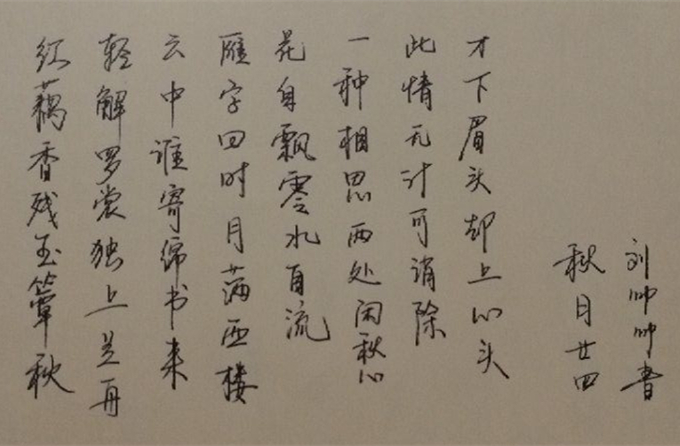 红藕香残玉簟秋
轻解罗裳独上兰舟
云中谁寄锦书来
雁字回时月满西楼
花自飘零水自流
一种相思两处闲愁
此情无计可消除
才下眉头却上心头
秋月廿四
刘帅帅书